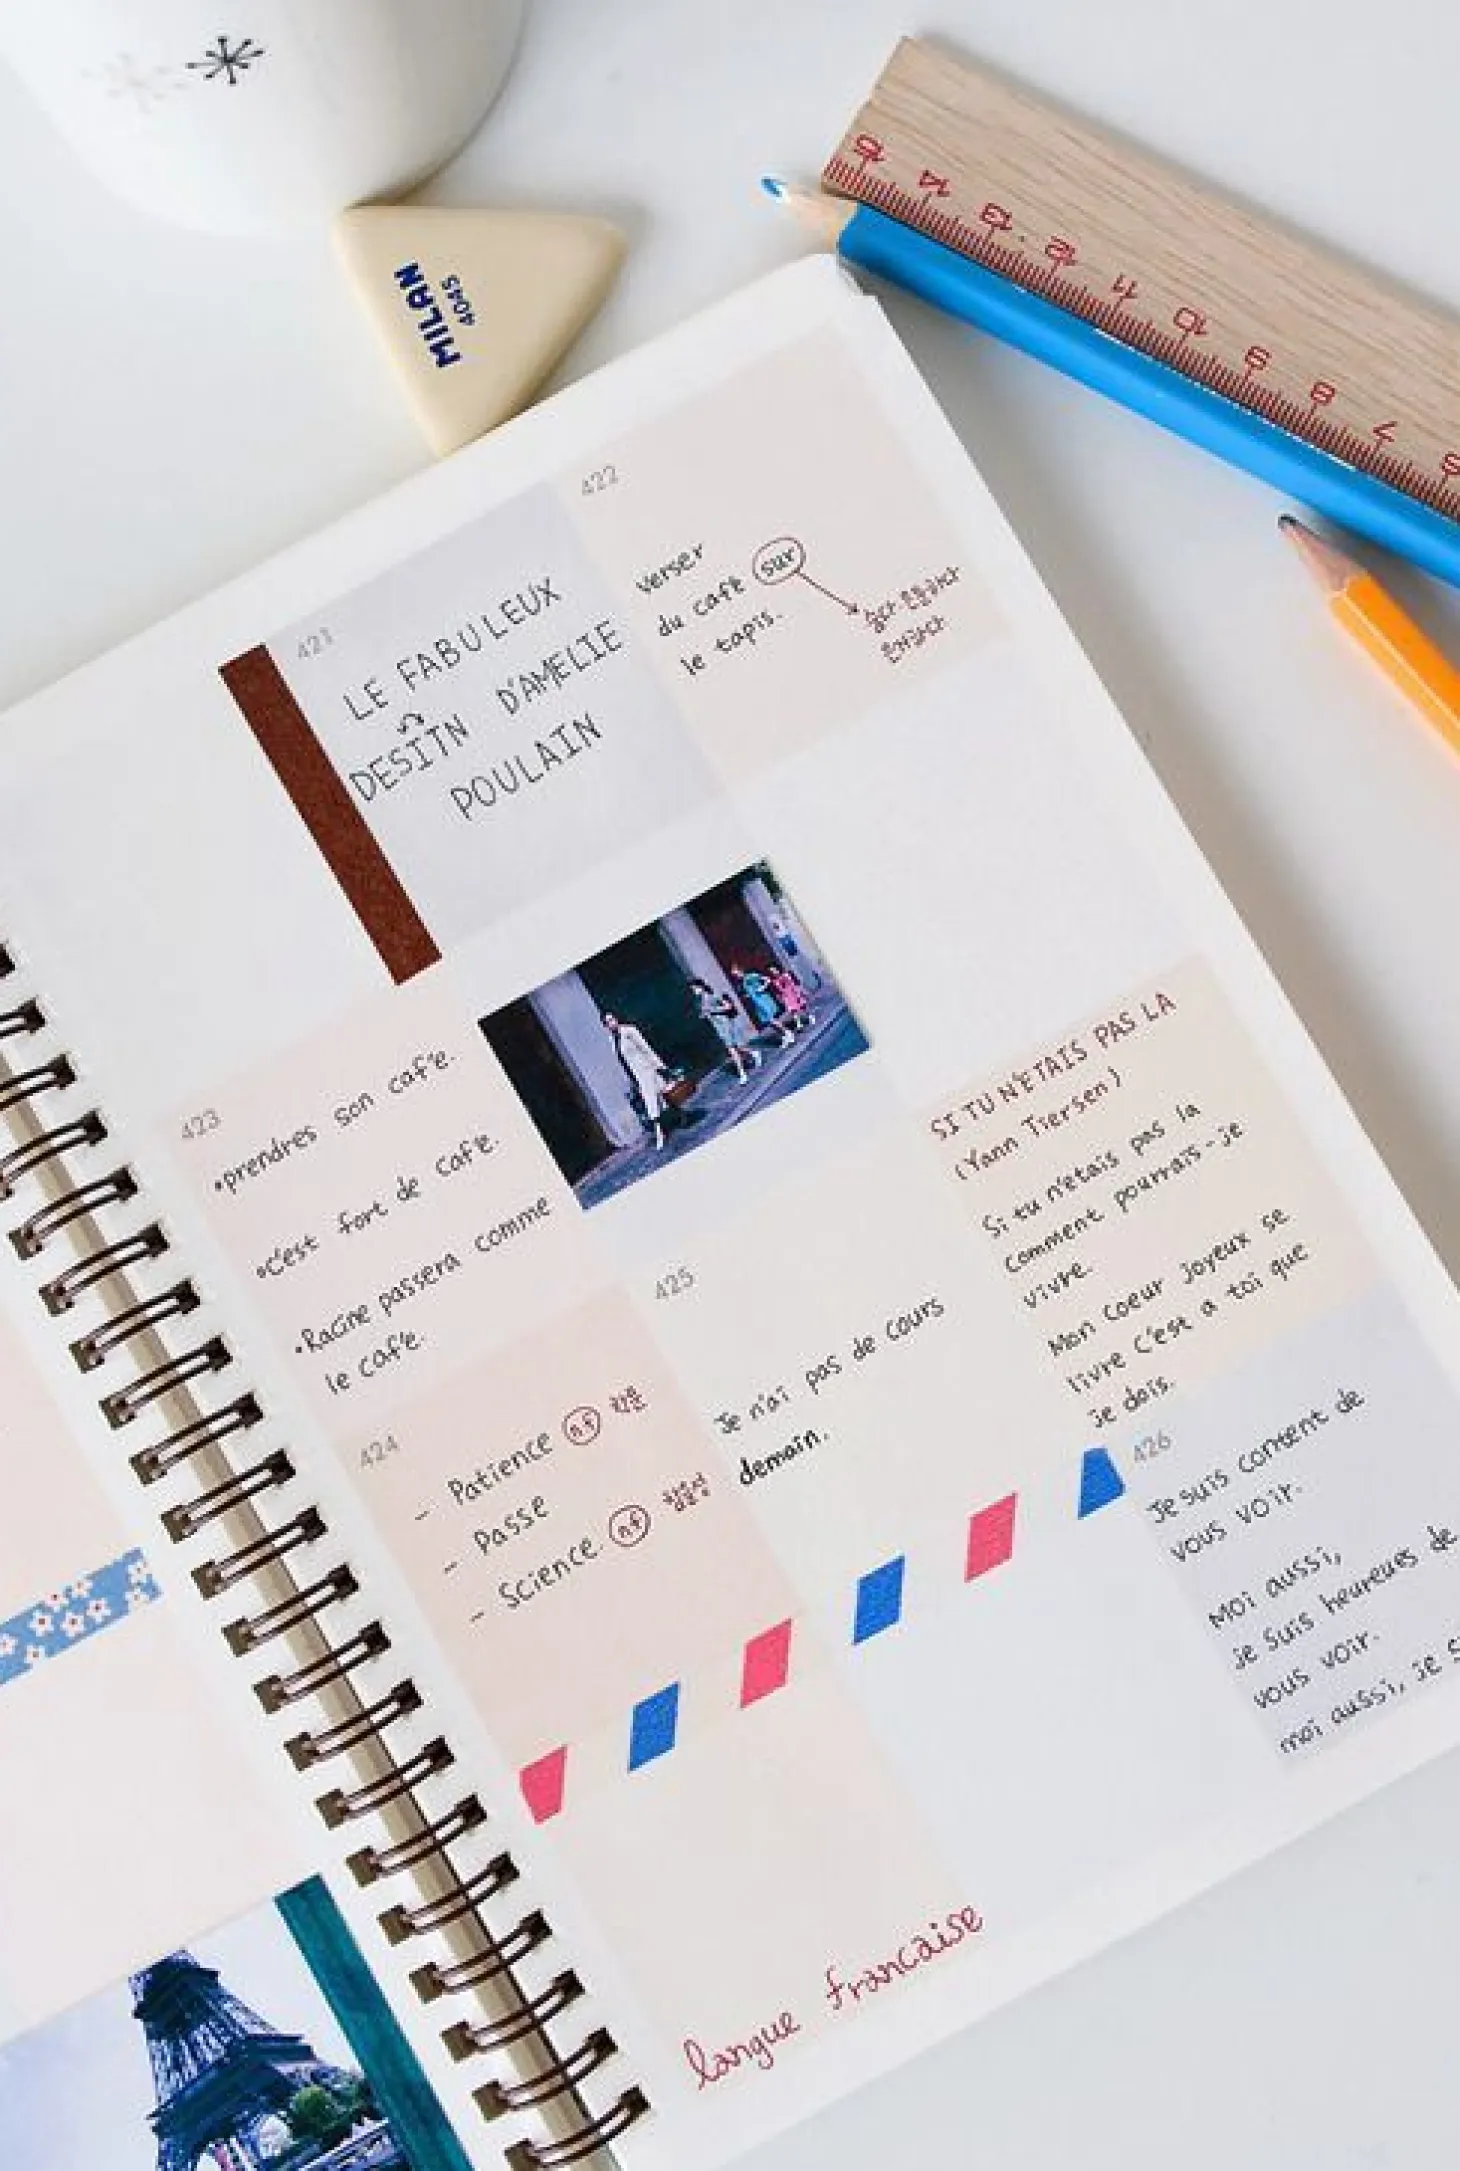 MILAN
4045
15 14 13 12 11 10 9 8 7 6
421
LE FABULEUX
DESITN D'AMELIE
POULAIN
422
verser
du café sur
le tapis.
423
•prendres son caf'e.
•C'est fort de caf'e.
•Racine passera comme
le caf'e.
424
- Patience n.f
- Passe
- Science. n.f
425
Je n'ai pas de cours
demain.
SI TU N'ETAIS PAS LA
(Yann Tiersen)
Si tu n'etais pas la
comment pourrais-je
vivre.
Mon coeur joyeux se
livre C'est a toi que
je dois.
426
Je suis content de
vous voir.
Moi aussi,
je suis heureues de
vous voir.
moi aussi, je s
langue francaise